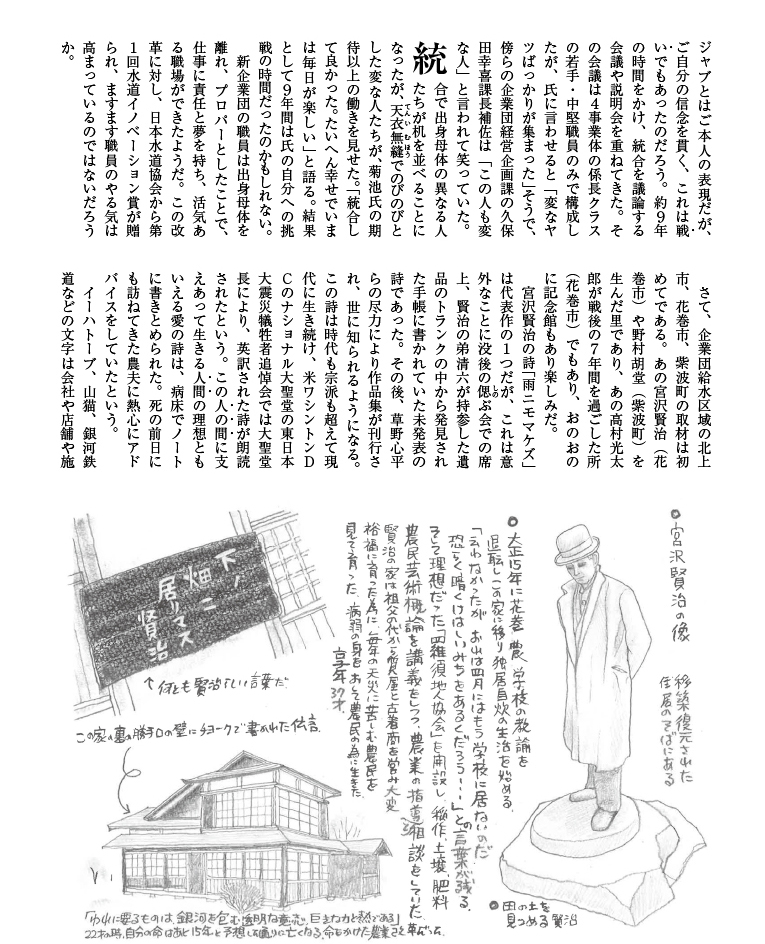 ジャブとはご本人の表現だが、
ご自分の信念を貫く、これは戦
いでもあったのだろう。約９年
の時間をかけ、統合を議論する
会議や説明会を重ねてきた。そ
の会議は４事業体の係長クラス
の若手・中堅職員のみで構成し
たが、氏に言わせると「変なヤ
ツばっかりが集まった」そうで、
傍らの企業団経営企画課の久保
田幸喜課長補佐は「この人も変
な人」と言われて笑っていた。
統合で出身母体の異なる人
たちが机を並べることに
なったが、天衣無縫でのびのびと
てんいむほう
した変な人たちが、菊池氏の期
待以上の働きを見せた。「統合し
て良かった。たいへん幸せでいま
は毎日が楽しい」と語る。結果
として９年間は氏の自分への挑
戦の時間だったのかもしれない。
新企業団の職員は出身母体を
離れ、プロパーとしたことで、
仕事に責任と夢を持ち、活気あ
る職場ができたようだ。この改
革に対し、日本水道協会から第
１回水道イノベーション賞が贈
られ、ますます職員のやる気は
高まっているのではないだろう
か。
さて、企業団給水区域の北上
市、花巻市、紫波町の取材は初
めてである。あの宮沢賢治（花
巻市）や野村胡堂（紫波町）を
生んだ里であり、あの高村光太
郎が戦後の７年間を過ごした所
（花巻市）でもあり、おのおの
に記念館もあり楽しみだ。
宮沢賢治の詩「雨ニモマケズ」
は代表作の１つだが、これは意
外なことに没後の偲ぶ会での席
しの
上、賢治の弟清六が持参した遺
品のトランクの中から発見され
た手帳に書かれていた未発表の
詩であった。その後、草野心平
らの尽力により作品集が刊行さ
れ、世に知られるようになる。
この詩は時代も宗派も超えて現
代に生き続け、米ワシントンＤ
Ｃのナショナル大聖堂の東日本
大震災犠牲者追悼会では大聖堂
長により、英訳された詩が朗読
されたという。この人の間に支
えあって生きる人間の理想とも
いえる愛の詩は、病床でノート
に書きとめられた。死の前日に
も訪ねてきた農夫に熱心にアド
バイスをしていたという。
イーハトーブ、山猫、銀河鉄
道などの文字は会社や店舗や施
宮沢賢治の像
移築復元された
住居のそばにある
田の土を
見つめる賢治
大正15年に花巻農学校の教諭を
退転しこの家に移り独居自炊の生活を始める。
「云わなかったが、おれは四月にはもう学校に居ないのだ
恐らく暗くけはしいみちをあるくだろう……」との言葉が残る。
そして理想だった「羅須地人協会」を開設し、稲作、土壌、肥料
農民芸術概論を講義をしつつ、農業の指導相談をしていた。
賢治の家は祖父の代から質屋と古着商を営み大変
裕福に育った為に毎年の天災に苦しむ農民を
見て育った。病弱の身をおして農民の為に生きた
享年37才。
下ノ
畑ニ
居リマス
賢治
↑何とも賢治らしい言葉だ
この家の裏の勝手口の壁にチョークで書かれた伝言。
「われらに要るものは、銀河を包む透明な意志、巨きな力と熱である」